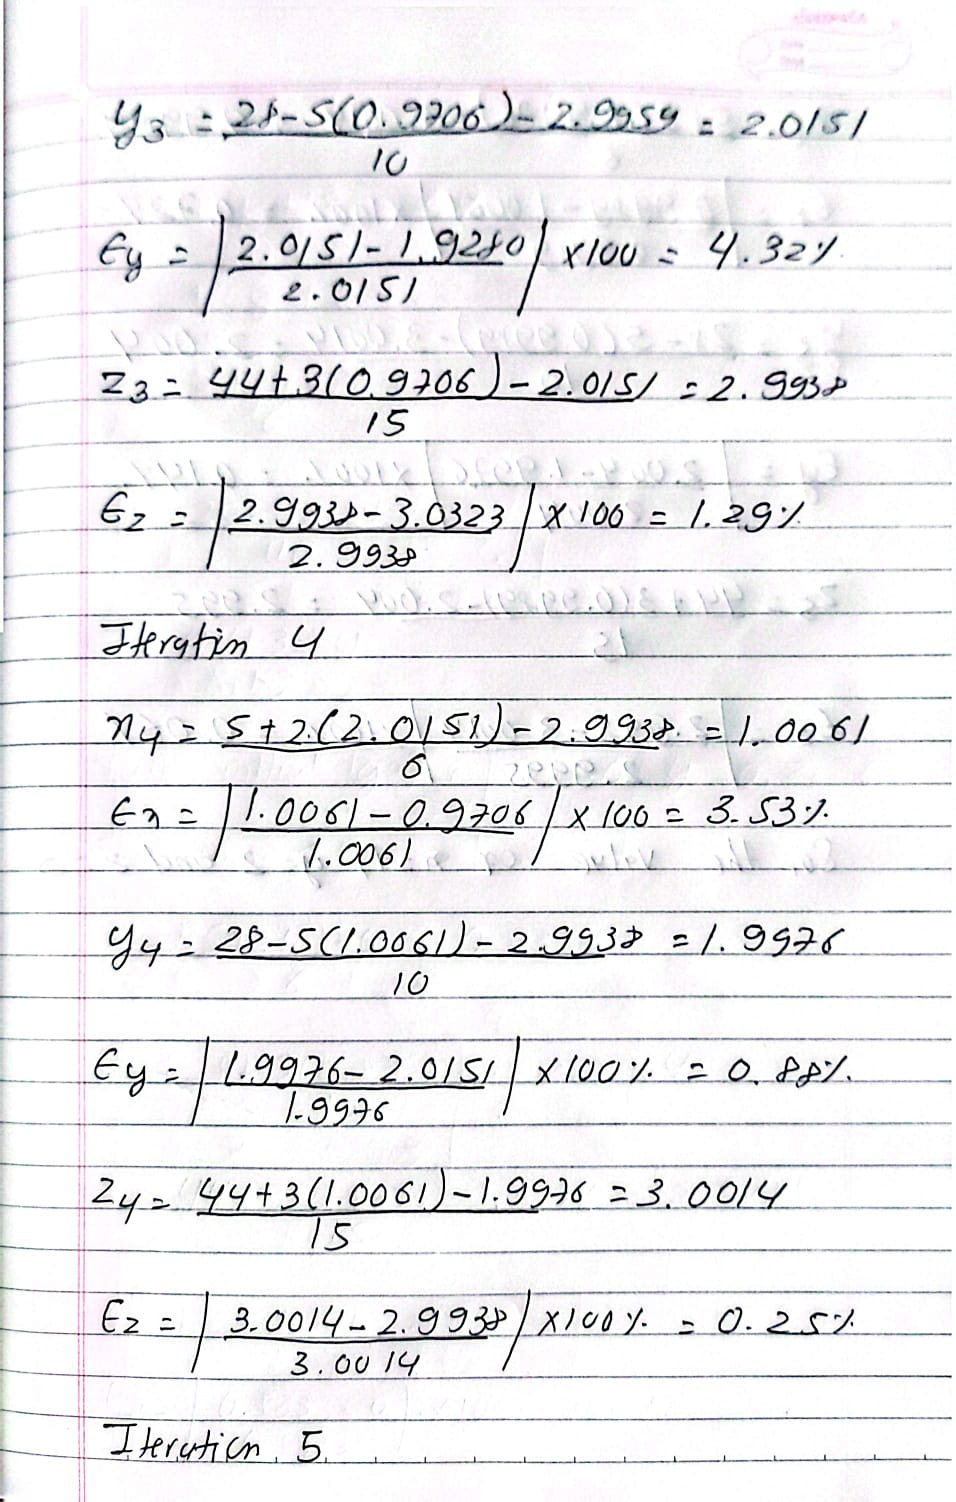 y₃ = (28-5(0.9706)-2.9959)/10 = 2.0151
Ey = |(2.0151-1.9280)/2.0151| x100 = 4.32%
z₃ = (44+3(0.9706)-2.0151)/15 = 2.9938
Ez = |(2.9938-3.0323)/2.9938| x100 = 1.29%
Iteration 4
x₄ = (5+2(2.0151)-2.9938)/6 = 1.0061
Ex = |(1.0061-0.9706)/1.0061| x100 = 3.53%
y₄ = (28-5(1.0061)-2.9938)/10 = 1.9976
Ey = |(1.9976-2.0151)/1.9976| x100% = 0.88%
z₄ = (44+3(1.0061)-1.9976)/15 = 3.0014
Ez = |(3.0014-2.9938)/3.0014| x100% = 0.25%
Iteration 5